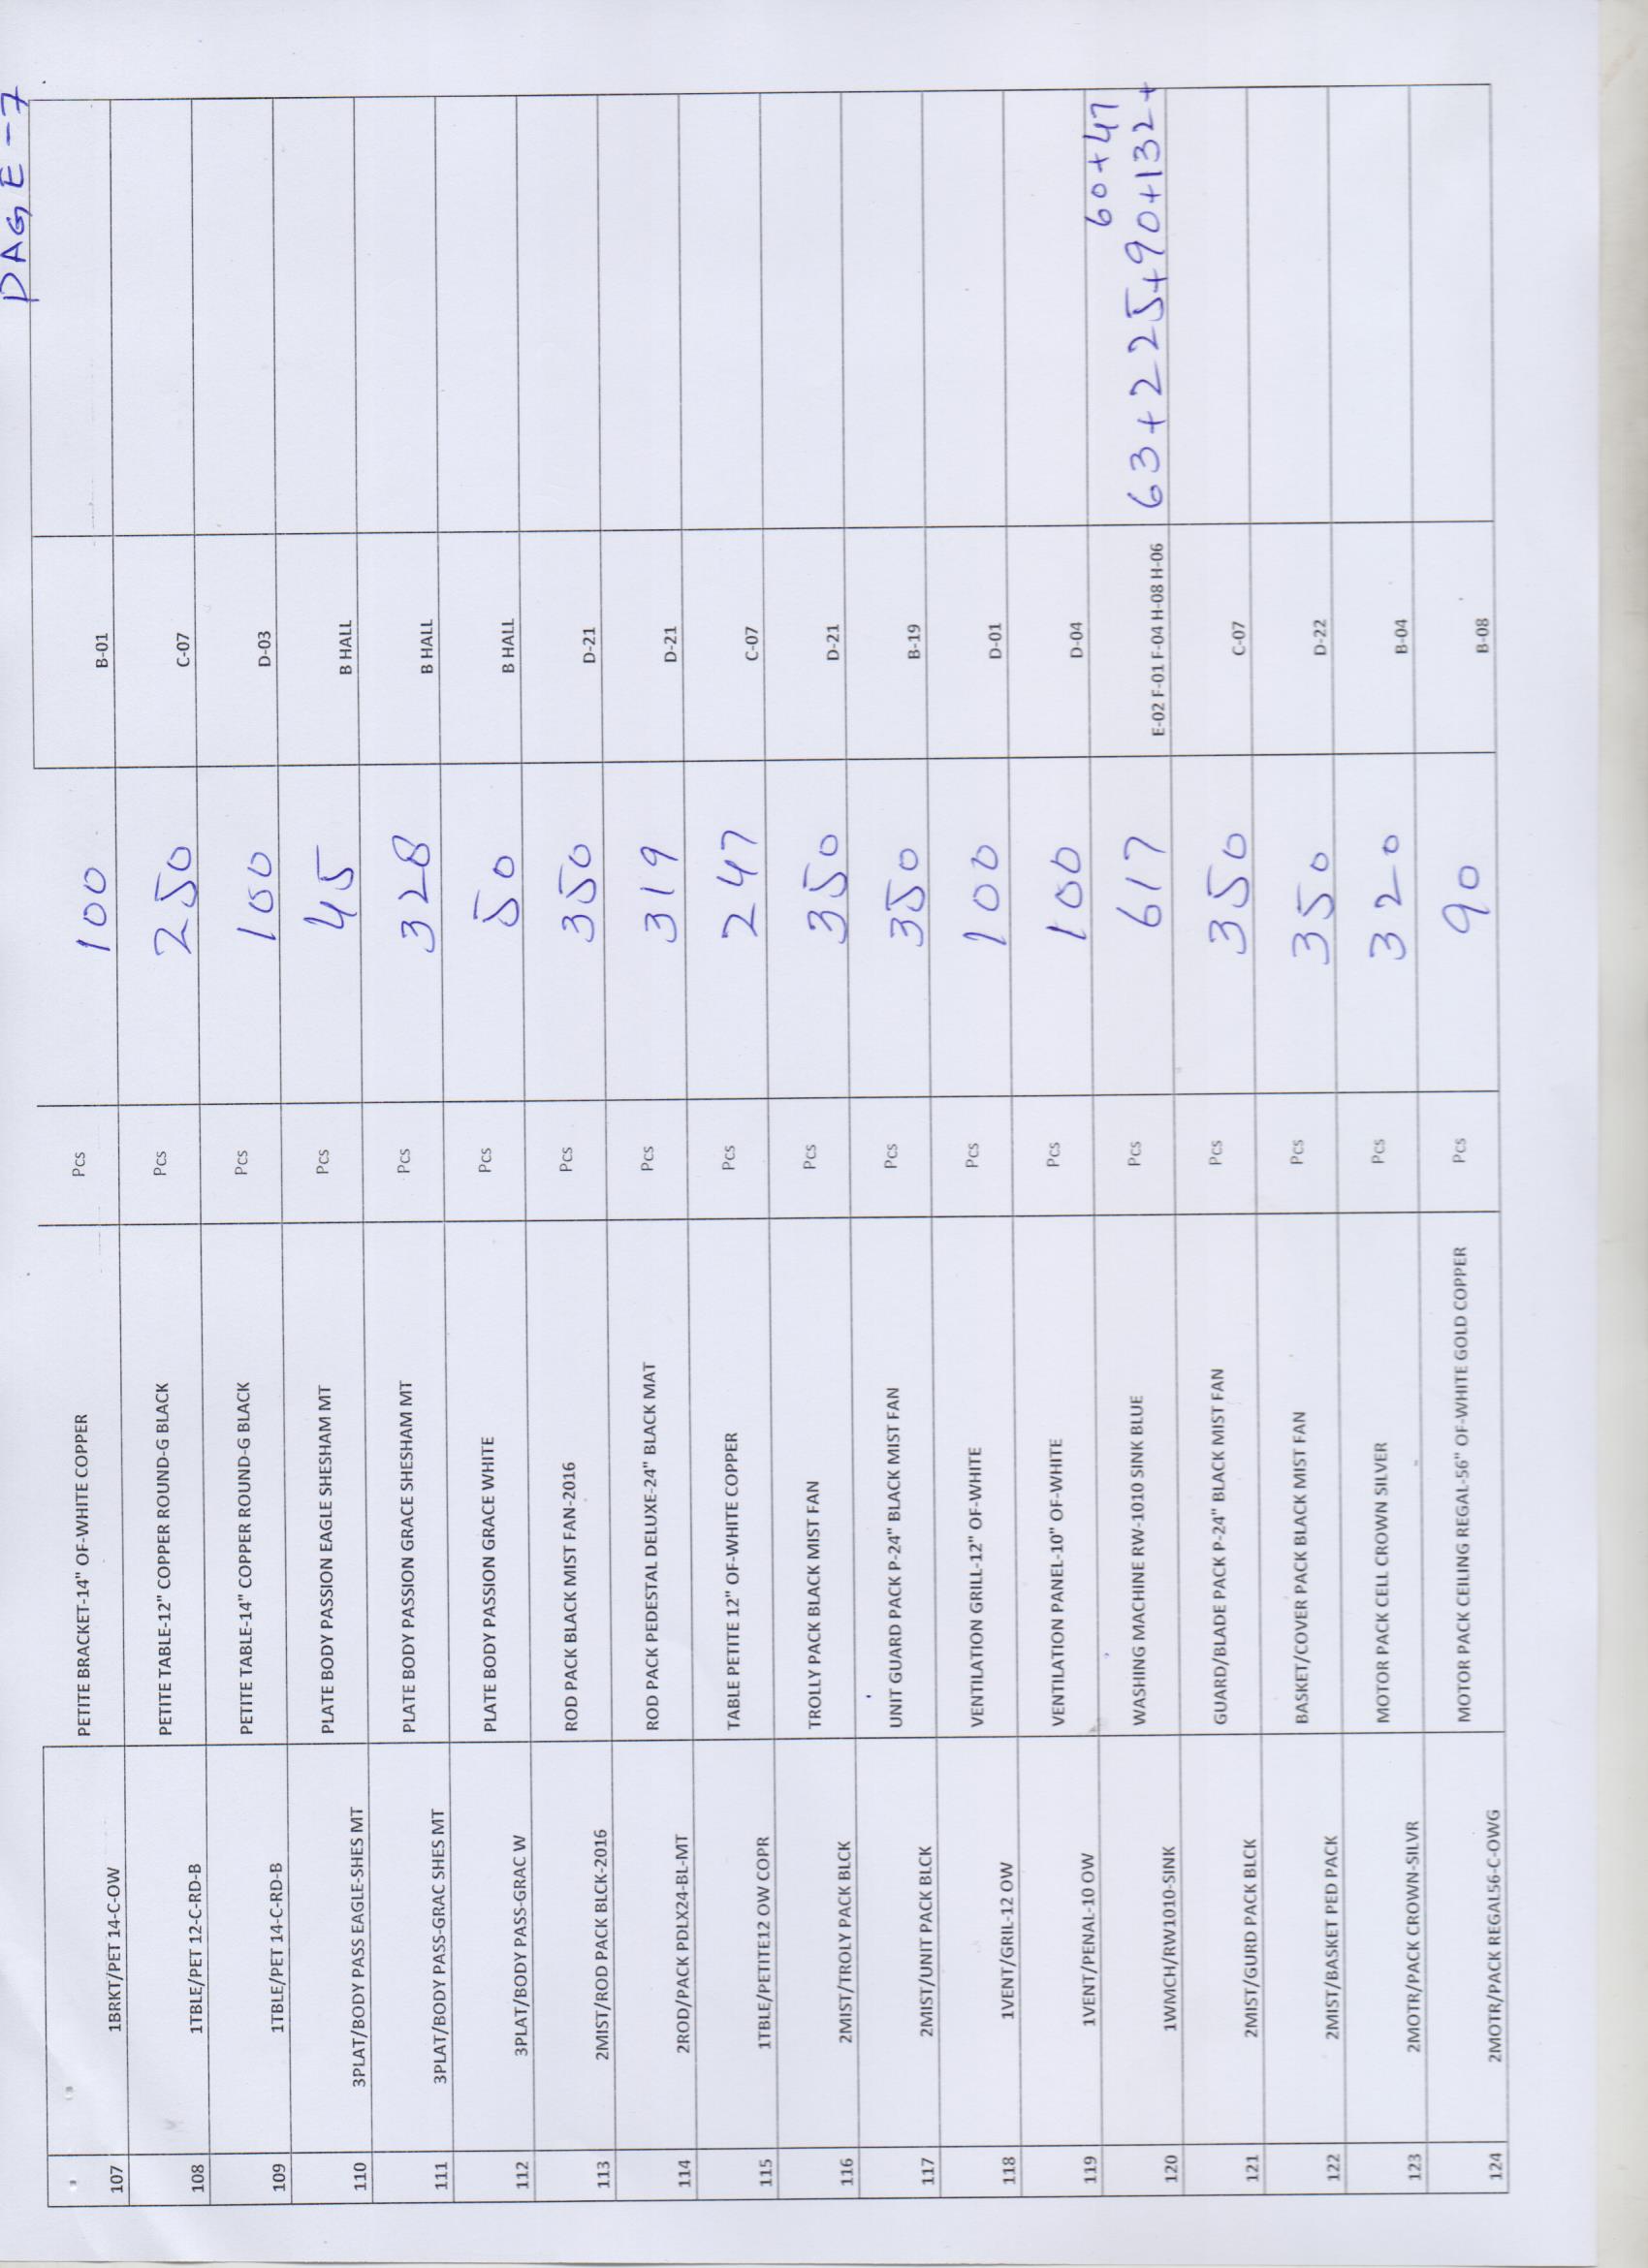 PAGE-7
107 1BRKT/PET 14-C-OW PETITE BRACKET-14" OF-WHITE COPPER Pcs 100 B-01
108 1TBLE/PET 12-C-RD-B PETITE TABLE-12" COPPER ROUND-G BLACK Pcs 250 C-07
109 1TBLE/PET 14-C-RD-B PETITE TABLE-14" COPPER ROUND-G BLACK Pcs 100 D-03
110 3PLAT/BODY PASS EAGLE-SHES MT PLATE BODY PASSION EAGLE SHESHAM MT Pcs 45 B HALL
111 3PLAT/BODY PASS-GRAC SHES MT PLATE BODY PASSION GRACE SHESHAM MT Pcs 328 B HALL
112 3PLAT/BODY PASS-GRAC W PLATE BODY PASSION GRACE WHITE Pcs 50 B HALL
113 2MIST/ROD PACK BLCK-2016 ROD PACK BLACK MIST FAN-2016 Pcs 350 D-21
114 2ROD/PACK PDLX24-BL-MT ROD PACK PEDESTAL DELUXE-24" BLACK MAT Pcs 319 D-21
115 1TBLE/PETITE12 OW COPR TABLE PETITE 12" OF-WHITE COPPER Pcs 247 C-07
116 2MIST/TROLY PACK BLCK TROLLY PACK BLACK MIST FAN Pcs 350 D-21
117 2MIST/UNIT PACK BLCK UNIT GUARD PACK P-24" BLACK MIST FAN Pcs 350 B-19
118 1VENT/GRIL-12 OW VENTILATION GRILL-12" OF-WHITE Pcs 100 D-01
119 1VENT/PENAL-10 OW VENTILATION PANEL-10" OF-WHITE Pcs 100 D-04
60+47
120 1WMCH/RW1010-SINK WASHING MACHINE RW-1010 SINK BLUE Pcs 617 E-02 F-01 F-04 H-08 H-06 63+225+90+132+
121 2MIST/GURD PACK BLCK GUARD/BLADE PACK P-24" BLACK MIST FAN Pcs 350 C-07
122 2MIST/BASKET PED PACK BASKET/COVER PACK BLACK MIST FAN Pcs 350 D-22
123 2MOTR/PACK CROWN-SILVR MOTOR PACK CELL CROWN SILVER Pcs 320 B-04
124 2MOTR/PACK REGAL56-C-OWG MOTOR PACK CEILING REGAL-56" OF-WHITE GOLD COPPER Pcs 90 B-08